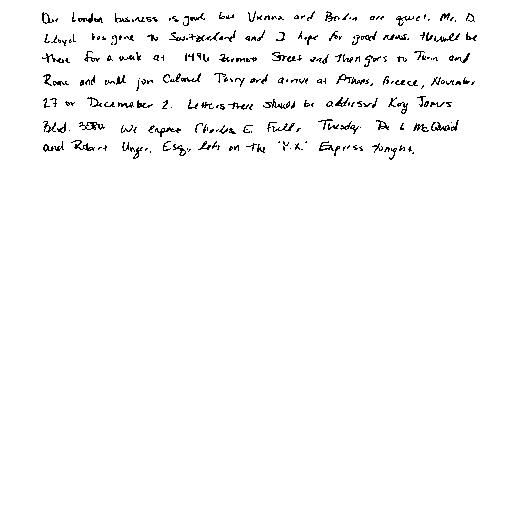 Our London business is good, but Vienna and Berlin are quiet. Mr. D.
Lloyd has gone to Switzerland and I hope for good news. He will be
there for a week at 1496 Zermott Street and then goes to Turin and
Rome and will join Colonel Parry and arrive at Athens, Greece, November
27 or Decemeber 2. Letters there should be addressed King James
Blvd. 3580. We expect Charles E. Fuller Tuesday. Dr. L McQuaid
and Robert Unger, Esq., left on the "Y.X." Express tonight.